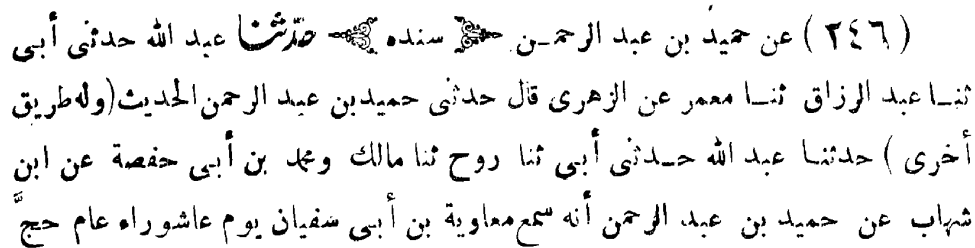 (٢٤٦) عن حميد بن عبد الرحمـن ﴿ سنده ﴾ حدّثنا عبد الله حدثنى أبى
ثنـا عبد الرزاق ثنـا معمر عن الزهرى قال حدثنى حميد بن عبد الرحمن الحديث (وله طريق
أخرى ) حدثنـا عبد الله حـدثنى أبى ثنا روح ثنا مالك ومحمد بن أبى حفصة عن ابن
شهاب عن حميد بن عبد الرحمن أنه سمع معاوية بن أبى سفيان يوم عاشوراء عام حجَّ